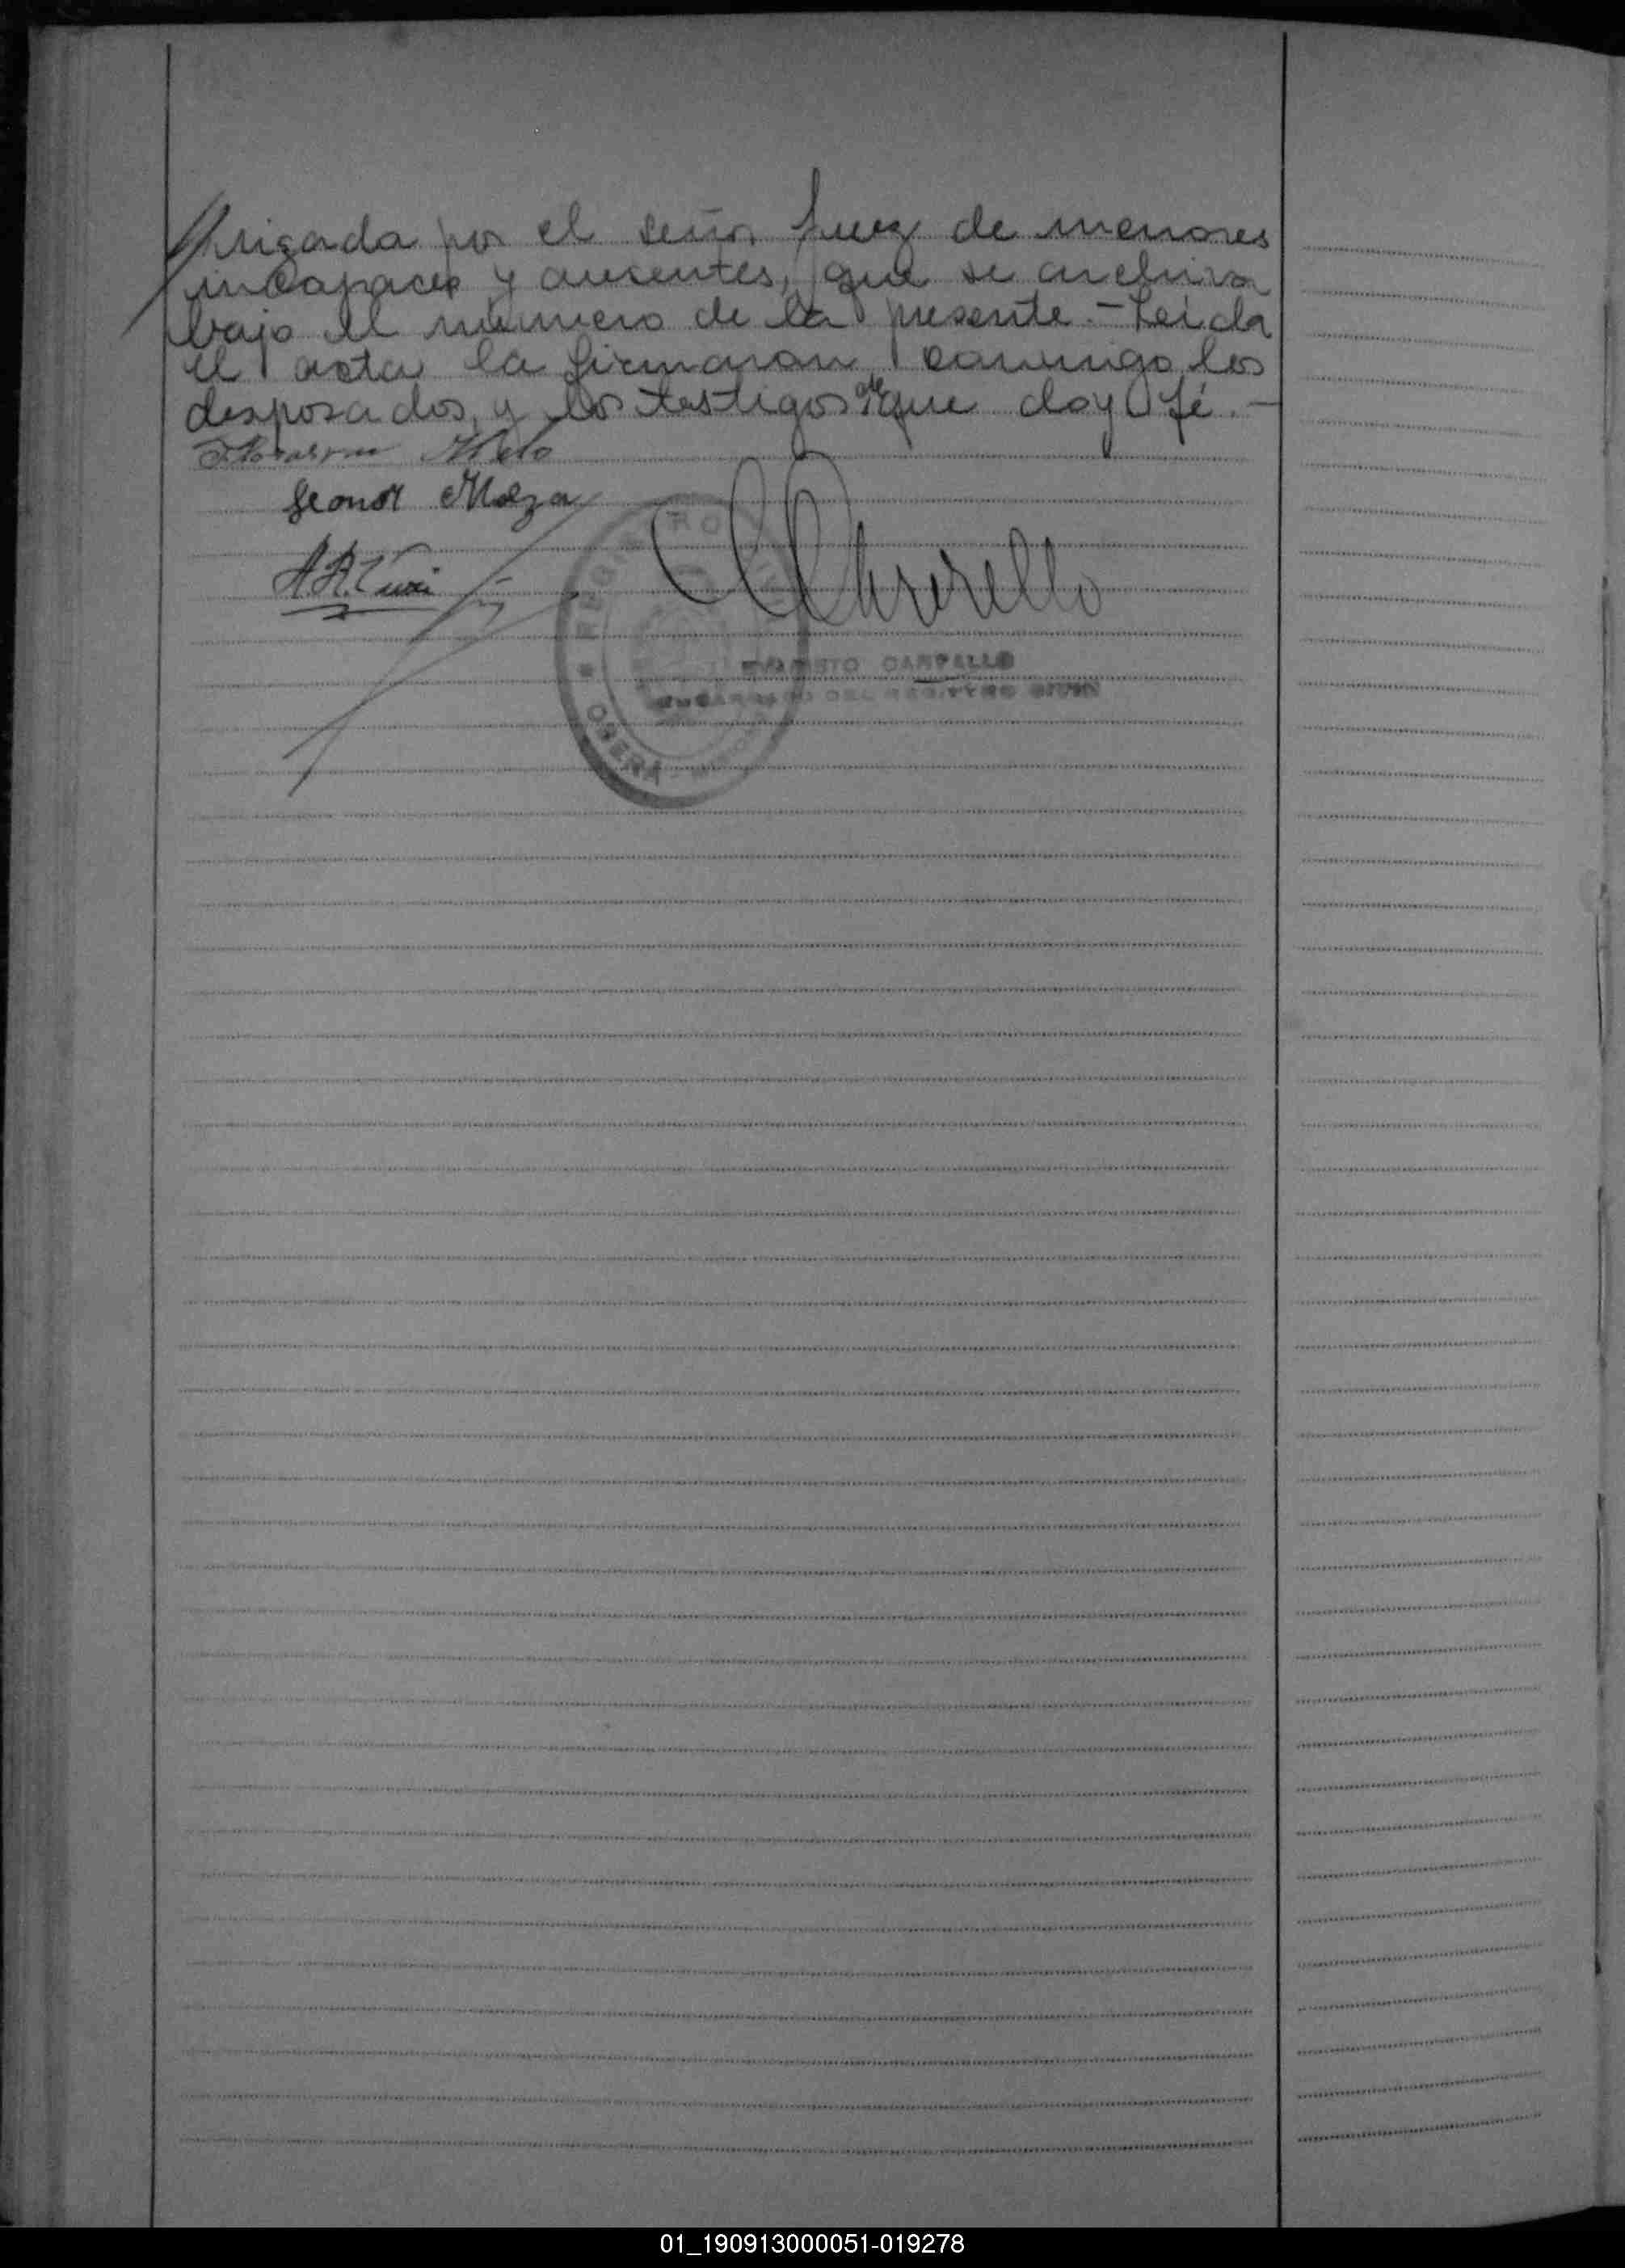 por el señor Juez de menores
incapaces y ausentes, que se archiva
bajo el número de la presente.- Leida
el acta la firmaron conmigo los
desposados, y los testigos de que doy fé.-
Melo
Leonor Meza
A.R.
REGISTRO CIVIL
OBERÁ - MISIONES
EVARISTO CARPELLO
ENCARGADO DEL REGISTRO CIVIL
01_190913000051-019278